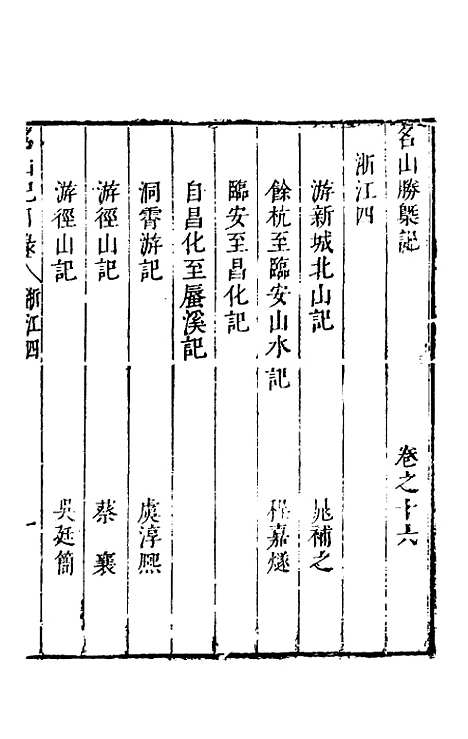 名山勝槩記 卷之十六
浙江四
游新城北山記 晁補之
餘杭至臨安山水記 程嘉燧
臨安至昌化記
自昌化至蜃溪記
洞霄游記 虞淳熙
游徑山記 蔡襄
游徑山記 吳廷簡
名山記目錄 浙江四 一